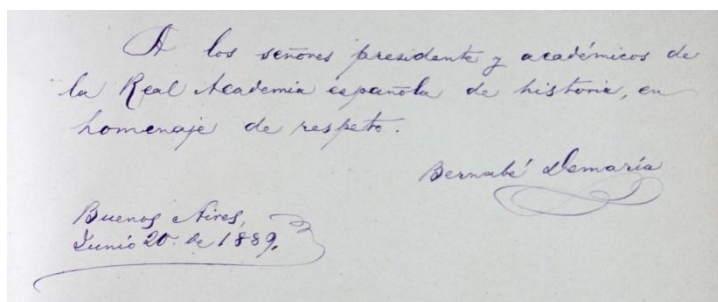 A los señores presidente y académicos de
la Real Academia española de historia, en
homenaje de respeto.
Bernabé Demaría
Buenos Aires,
Junio 20. de 1889.